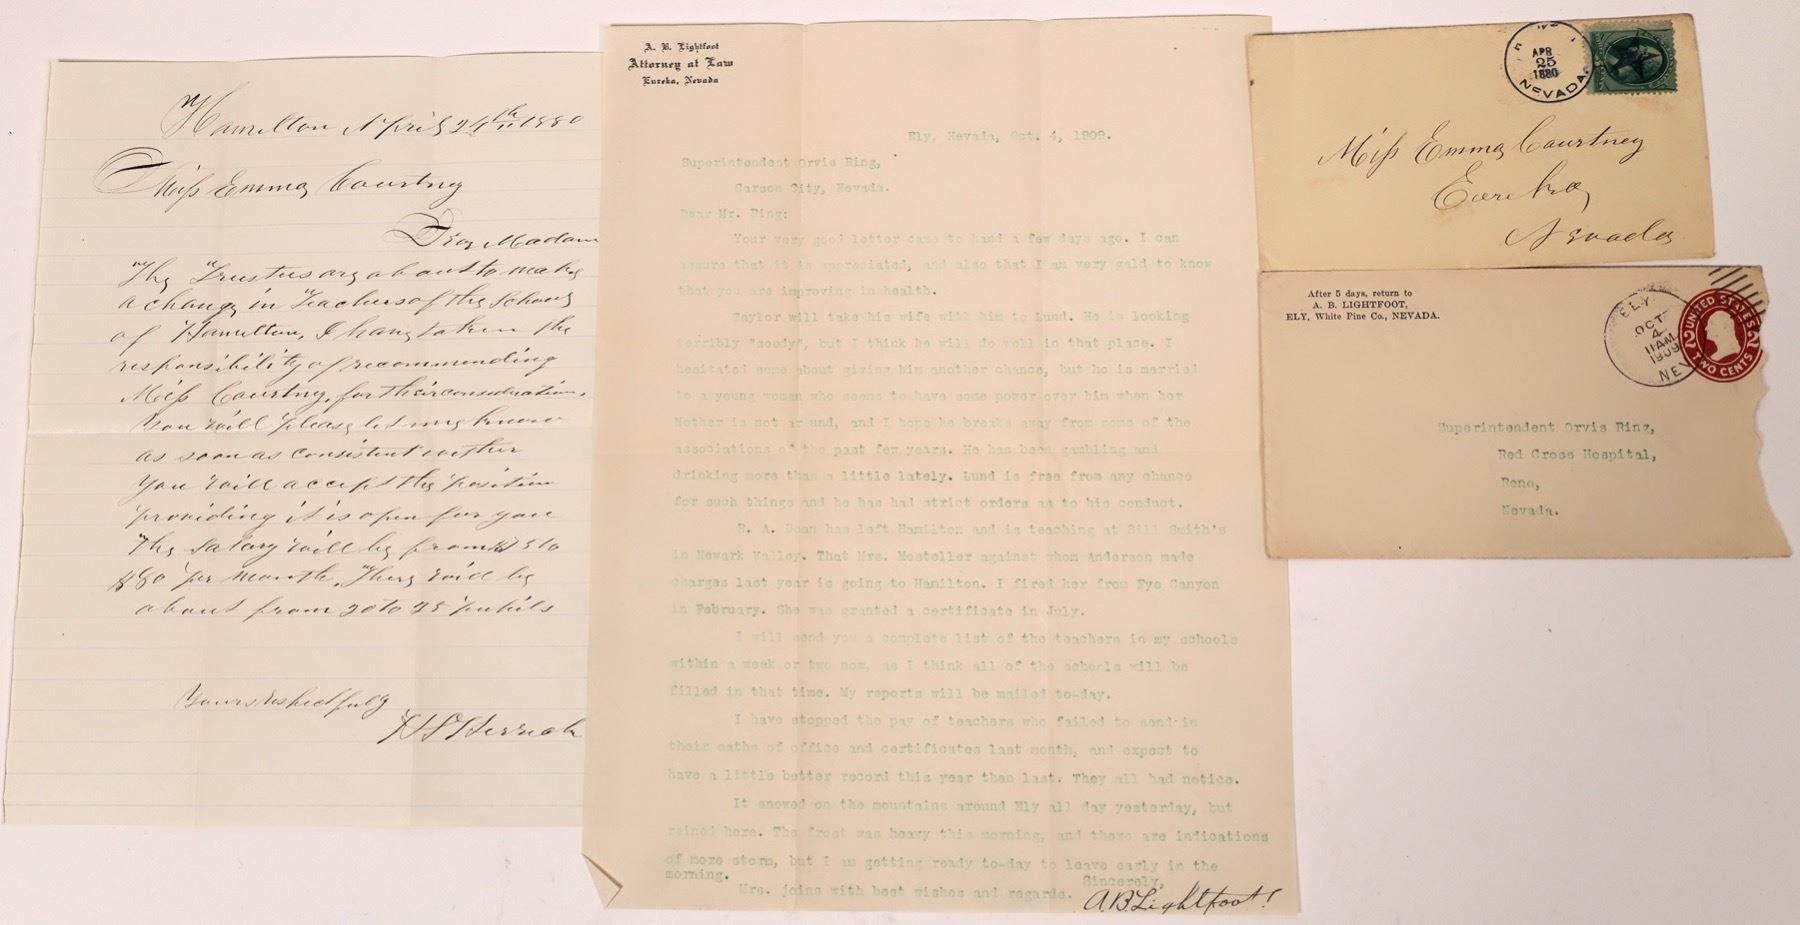 Hamilton April 24th 1880
Miss Emma Courtney
Dear Madam
The Trustees are about to make
a change in Teachers of the Schools
of Hamilton, I have taken the
responsibility of recommending
Miss Courtney, for their consideration,
You will please let me know
as soon as consistent wether
you will accept the position
providing it is open for you
The Salary will be from to
$80 per month, There will be
about from 20 to 25 pupils
Yours respectfully
A. B. Lightfoot
Attorney at Law
Eureka, Nevada
Ely, Nevada, Oct. 4, 1909.
Superintendent Orvis Ring,
Carson City, Nevada.
Dear Mr. Ring:
Your very good letter came to hand a few days ago. I can
assure that it is appreciated, and also that I am very gald to know
that you are improving in health.
Taylor will take his wife with him to Lund. He is looking
terribly "seedy", but I think he will do well in that place. I
hesitated some about giving him another chance, but he is married
to a young woman who seems to have some power over him when her
Mother is not around, and I hope he breaks away from some of the
associations of the past few years. He has been gambling and
drinking more than a little lately. Lund is free from any chance
for such things and he has had strict orders as to his conduct.
R. A. Dean has left Hamilton and is teaching at Bill Smith's
in Newark Valley. That Mrs. Mosteller against whom Anderson made
charges last year is going to Hamilton. I fired her from Eye Canyon
in February. She was granted a certificate in July.
I will send you a complete list of the teachers in my schools
within a week or two now, as I think all of the schools will be
filled in that time. My reports will be mailed to-day.
I have stopped the pay of teachers who failed to send in
their oaths of office and certificates last month, and expect to
have a little better record this year than last. They all had notice.
It snowed on the mountains around Ely all day yesterday, but
rained here. The frost was heavy this morning, and there are indications
of more storm, but I am getting ready to-day to leave early in the
morning.
Mrs. joins with best wishes and regards.
Sincerely,
A.B. Lightfoot
APR
25
1880
NEVADA
Miss Emma Courtney
Eureka
Nevada
After 5 days, return to
A. B. LIGHTFOOT,
ELY, White Pine Co., NEVADA.
ELY
OCT
4
11AM
1909
NEV
UNITED STATES
2 2
TWO CENTS
Superintendent Orvis Ring,
Red Cross Hospital,
Reno,
Nevada.